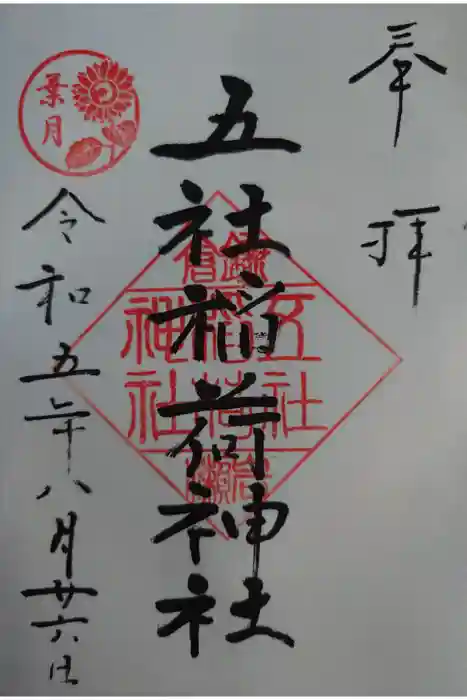 奉拝
五社稲荷神社
五社
稲荷
神社
葉月
令和五年八月廿六日